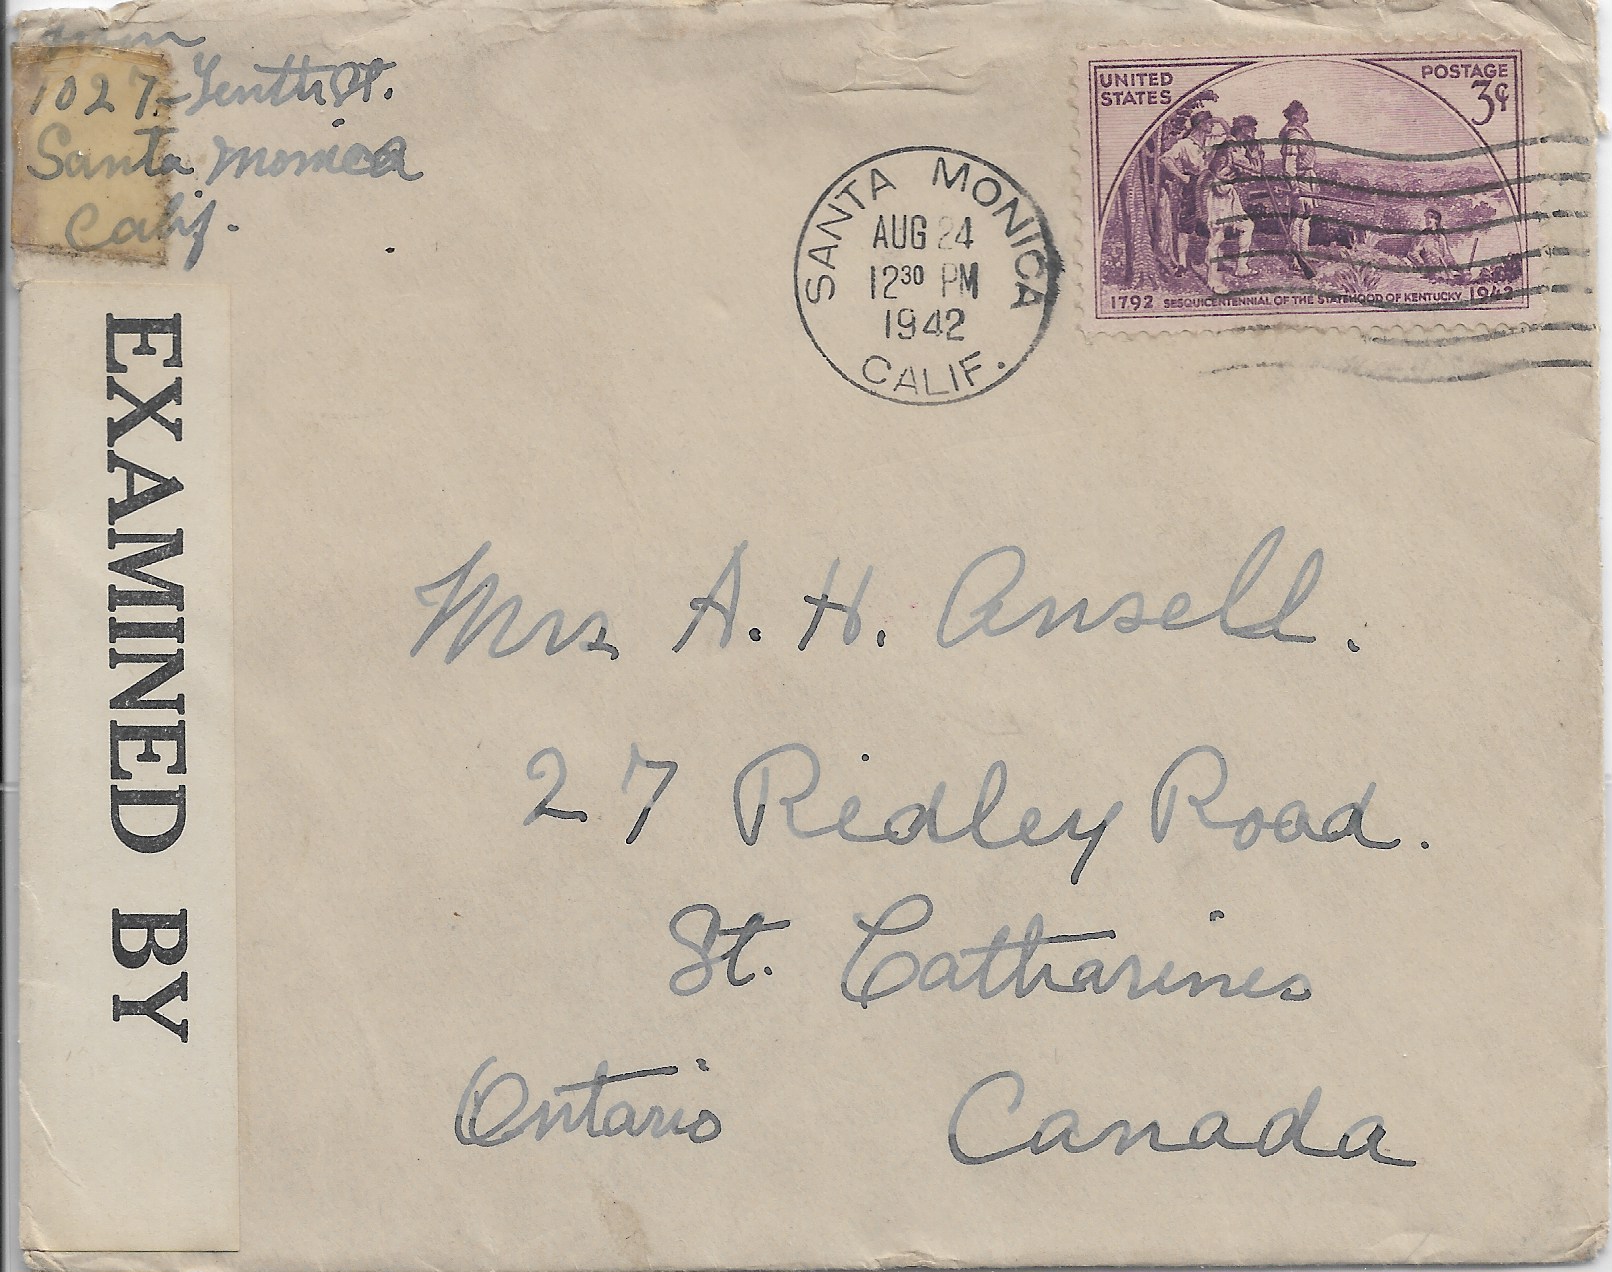 1027-Tenth St.
Santa Monica
Calif.
SANTA MONICA
AUG 24
12³⁰ PM
1942
CALIF.
UNITED STATES
POSTAGE
3¢
1792 SESQUICENTENNIAL OF THE STATEHOOD OF KENTUCKY 1942
EXAMINED BY
Mrs A. H. Ansell.
27 Ridley Road.
St. Catharines
Ontario Canada